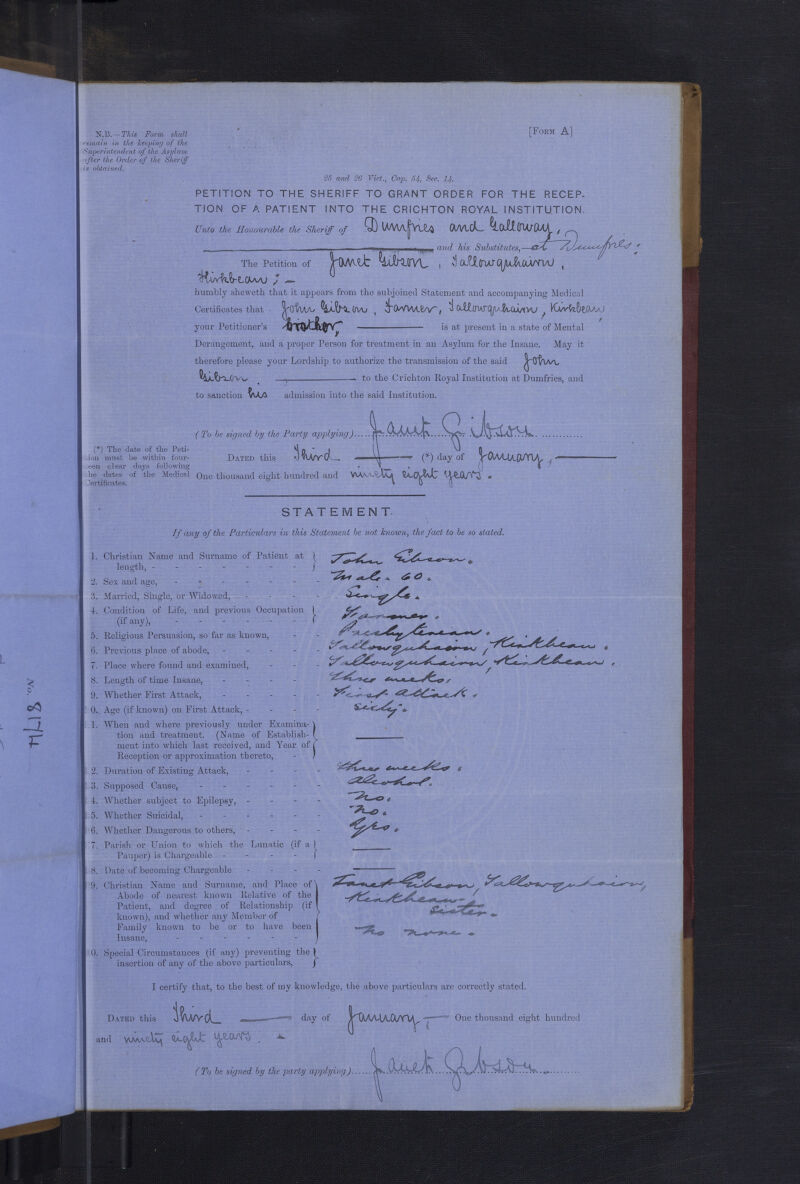 [FORM A]
N.B.—This Form shall
remain in the keeping of the
Superintendent of the Asylum
after the Order of the Sheriff
is obtained.
25 and 26 Vict., Cap. 54, Sec. 14.
PETITION TO THE SHERIFF TO GRANT ORDER FOR THE RECEP-
TION OF A PATIENT INTO THE CRICHTON ROYAL INSTITUTION.
Unto the Honourable the Sheriff of Dumfries and Galloway,
and his Substitutes,—at Dumfries;
The Petition of Janet Gibson, Tallowquhairn,
Kirkbean; —
humbly sheweth that it appears from the subjoined Statement and accompanying Medical
Certificates that John Gibson, Farmer, Tallowquhairn, Kirkbean,
your Petitioner's brother, is at present in a state of Mental
Derangement, and a proper Person for treatment in an Asylum for the Insane. May it
therefore please your Lordship to authorize the transmission of the said John
Gibson, to the Crichton Royal Institution at Dumfries, and
to sanction his admission into the said Institution.
(To be signed by the Party applying) Janet Gibson
(*) The date of the Peti-
tion must be within four-
teen clear days following
the dates of the Medical
Certificates.
DATED this Third (*) day of January,
One thousand eight hundred and ninety eight years.
STATEMENT.
If any of the Particulars in this Statement be not known, the fact to be so stated.
1. Christian Name and Surname of Patient at
length, - John Gibson.
2. Sex and age, - Male. 60.
3. Married, Single, or Widowed, - Single.
4. Condition of Life, and previous Occupation
(if any), - Farmer.
5. Religious Persuasion, so far as known, - Presbyterian.
6. Previous place of abode, - Tallowquhairn, Kirkbean.
7. Place where found and examined, - Tallowquhairn, Kirkbean.
8. Length of time Insane, - three weeks.
9. Whether First Attack, - First Attack.
0. Age (if known) on First Attack, - Sixty.
1. When and where previously under Examina-
tion and treatment. (Name of Establish-
ment into which last received, and Year of
Reception or approximation thereto, -
2. Duration of Existing Attack, - three weeks.
3. Supposed Cause, - Alcohol.
4. Whether subject to Epilepsy, - No.
5. Whether Suicidal, - No.
6. Whether Dangerous to others, - Yes.
7. Parish or Union to which the Lunatic (if a
Pauper) is Chargeable -
8. Date of becoming Chargeable -
9. Christian Name and Surname, and Place of
Abode of nearest known Relative of the
Patient, and degree of Relationship (if
known), and whether any Member of
Family known to be or to have been
Insane, -
Janet Gibson, Tallowquhairn,
Kirkbean
Sister.
No none.
0. Special Circumstances (if any) preventing the
insertion of any of the above particulars,
I certify that, to the best of my knowledge, the above particulars are correctly stated.
DATED this Third day of January, One thousand eight hundred
and ninety eight years.
(To be signed by the party applying) Janet Gibson